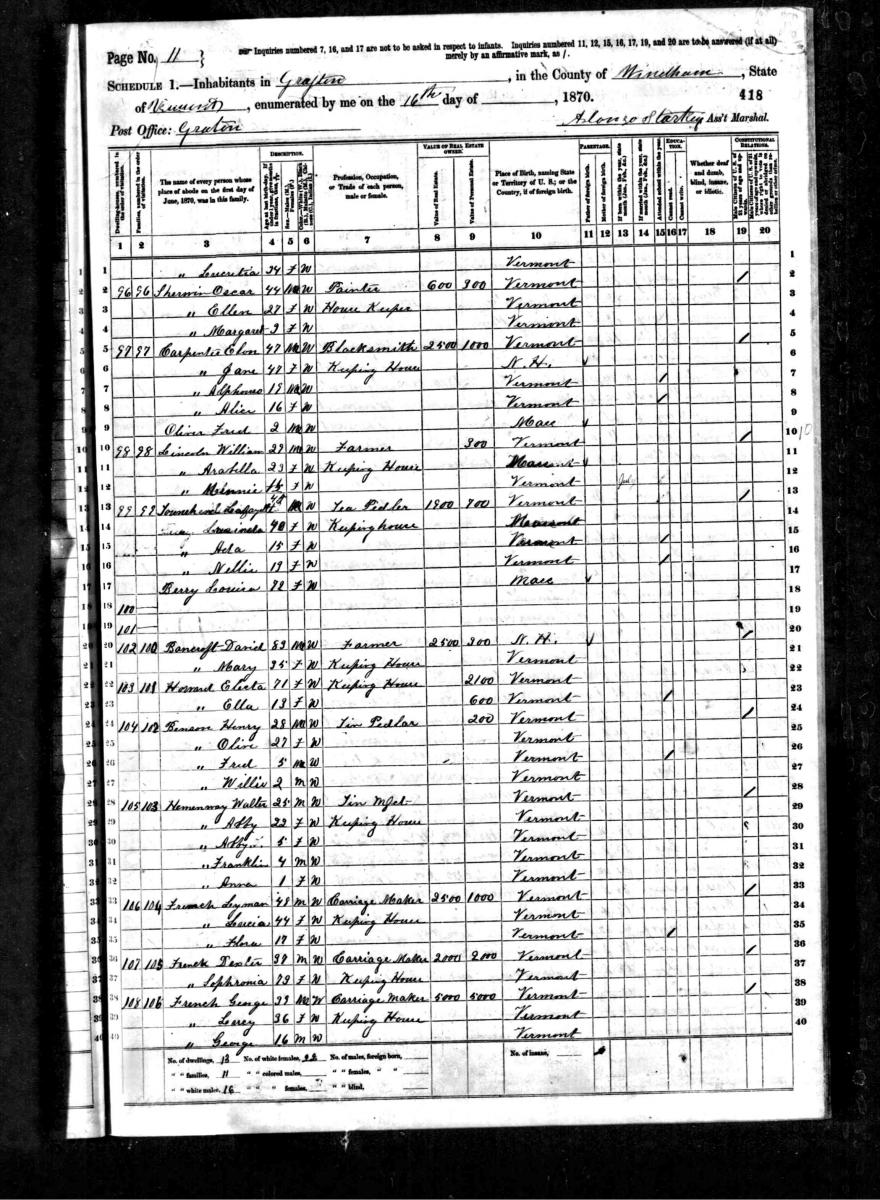 Page No. 11
Inquiries numbered 7, 16, and 17 are not to be asked in respect to infants. Inquiries numbered 11, 12, 15, 16, 17, 19, and 20 are to be answered (if at all) merely by an affirmative mark, as /.
SCHEDULE 1.—Inhabitants in Grafton, in the County of Windham, State
of Vermont, enumerated by me on the 16th day of , 1870. 418
Post Office: Grafton Alonzo Starkey Ass't Marshal.
DESCRIPTION. VALUE OF REAL ESTATE OWNED. PARENTAGE. EDUCATION. CONSTITUTIONAL RELATIONS.
Dwelling-houses, numbered in the order of visitation. Families, numbered in the order of visitation. The name of every person whose place of abode on the first day of June, 1870, was in this family. Profession, Occupation, or Trade of each person, male or female. Value of Real Estate. Value of Personal Estate. Place of Birth, naming State or Territory of U. S.; or the Country, if of foreign birth. Father of foreign birth. Mother of foreign birth. Attended school within the year. Cannot read. Cannot write. Whether deaf and dumb, blind, insane, or idiotic.
1 2 3 4 5 6 7 8 9 10 11 12 13 14 15 16 17 18 19 20
1 " Lucretia 34 F W Vermont 1
2 96 96 Sherwin Oscar 44 M W Painter 600 300 Vermont / 2
3 " Ellen 27 F W House Keeper Vermont 3
4 " Margaret 3 F W Vermont 4
5 97 97 Carpenter Elon 47 M W Blacksmith 2500 1000 Vermont / 5
6 " Jane 47 F W Keeping House N. H. 6
7 " Alphonso 19 M W Vermont / 7
8 " Alice 16 F W Vermont / 8
9 Oliver Fred 2 M W Mass 9
10 98 98 Lincoln William 29 M W Farmer 300 Vermont / 10
11 " Arabella 23 F W Keeping House 11
12 " Minnie F W Vermont 12
13 99 99 Townshend Lafayette M W Tea Pedler 1900 700 Vermont / 13
14 Lucinda 40 F W Keeping house 14
15 " Ada 15 F W Vermont / 15
16 " Nellie 13 F W Vermont / 16
17 Berry Louisa F W Mass 17
18 100 18
19 101 19
20 102 100 Bancroft David 83 M W Farmer 2500 300 N. H. / 20
21 " Mary 35 F W Keeping House Vermont 21
22 103 101 Howard Electa 71 F W Keeping House 2100 Vermont 22
23 " Ella 13 F W 600 Vermont / 23
24 104 102 Benson Henry 28 M W Tin Pedlar 200 Vermont / 24
25 " Olive 27 F W Vermont 25
26 " Fred 5 M W Vermont / 26
27 " Willie 2 M W Vermont 27
28 105 103 Hemenway Walter 25 M W Tin Vermont / 28
29 " Abby 22 F W Keeping House Vermont 29
30 " Abby 5 F W Vermont 30
31 " Franklin 4 M W Vermont 31
32 " Anna 1 F W Vermont 32
33 106 104 French Lyman 48 M W Carriage Maker 2500 1000 Vermont / 33
34 " Lucia 44 F W Keeping House Vermont 34
35 " Flora 17 F W Vermont / 35
36 107 105 French Dexter 38 M W Carriage Maker 2000 2000 Vermont / 36
37 " Sophronia 73 F W Keeping House Vermont 37
38 108 106 French George 39 M W Carriage Maker 5000 5000 Vermont / 38
39 " Lucy 36 F W Keeping House Vermont 39
40 " George 16 M W Vermont 40
No. of dwellings, 13 No. of white females, 22 No. of males, foreign born, No. of insane,
" " families, 11 " " colored males, " " females, " "
" " white males, 16 " " " females, " " blind,